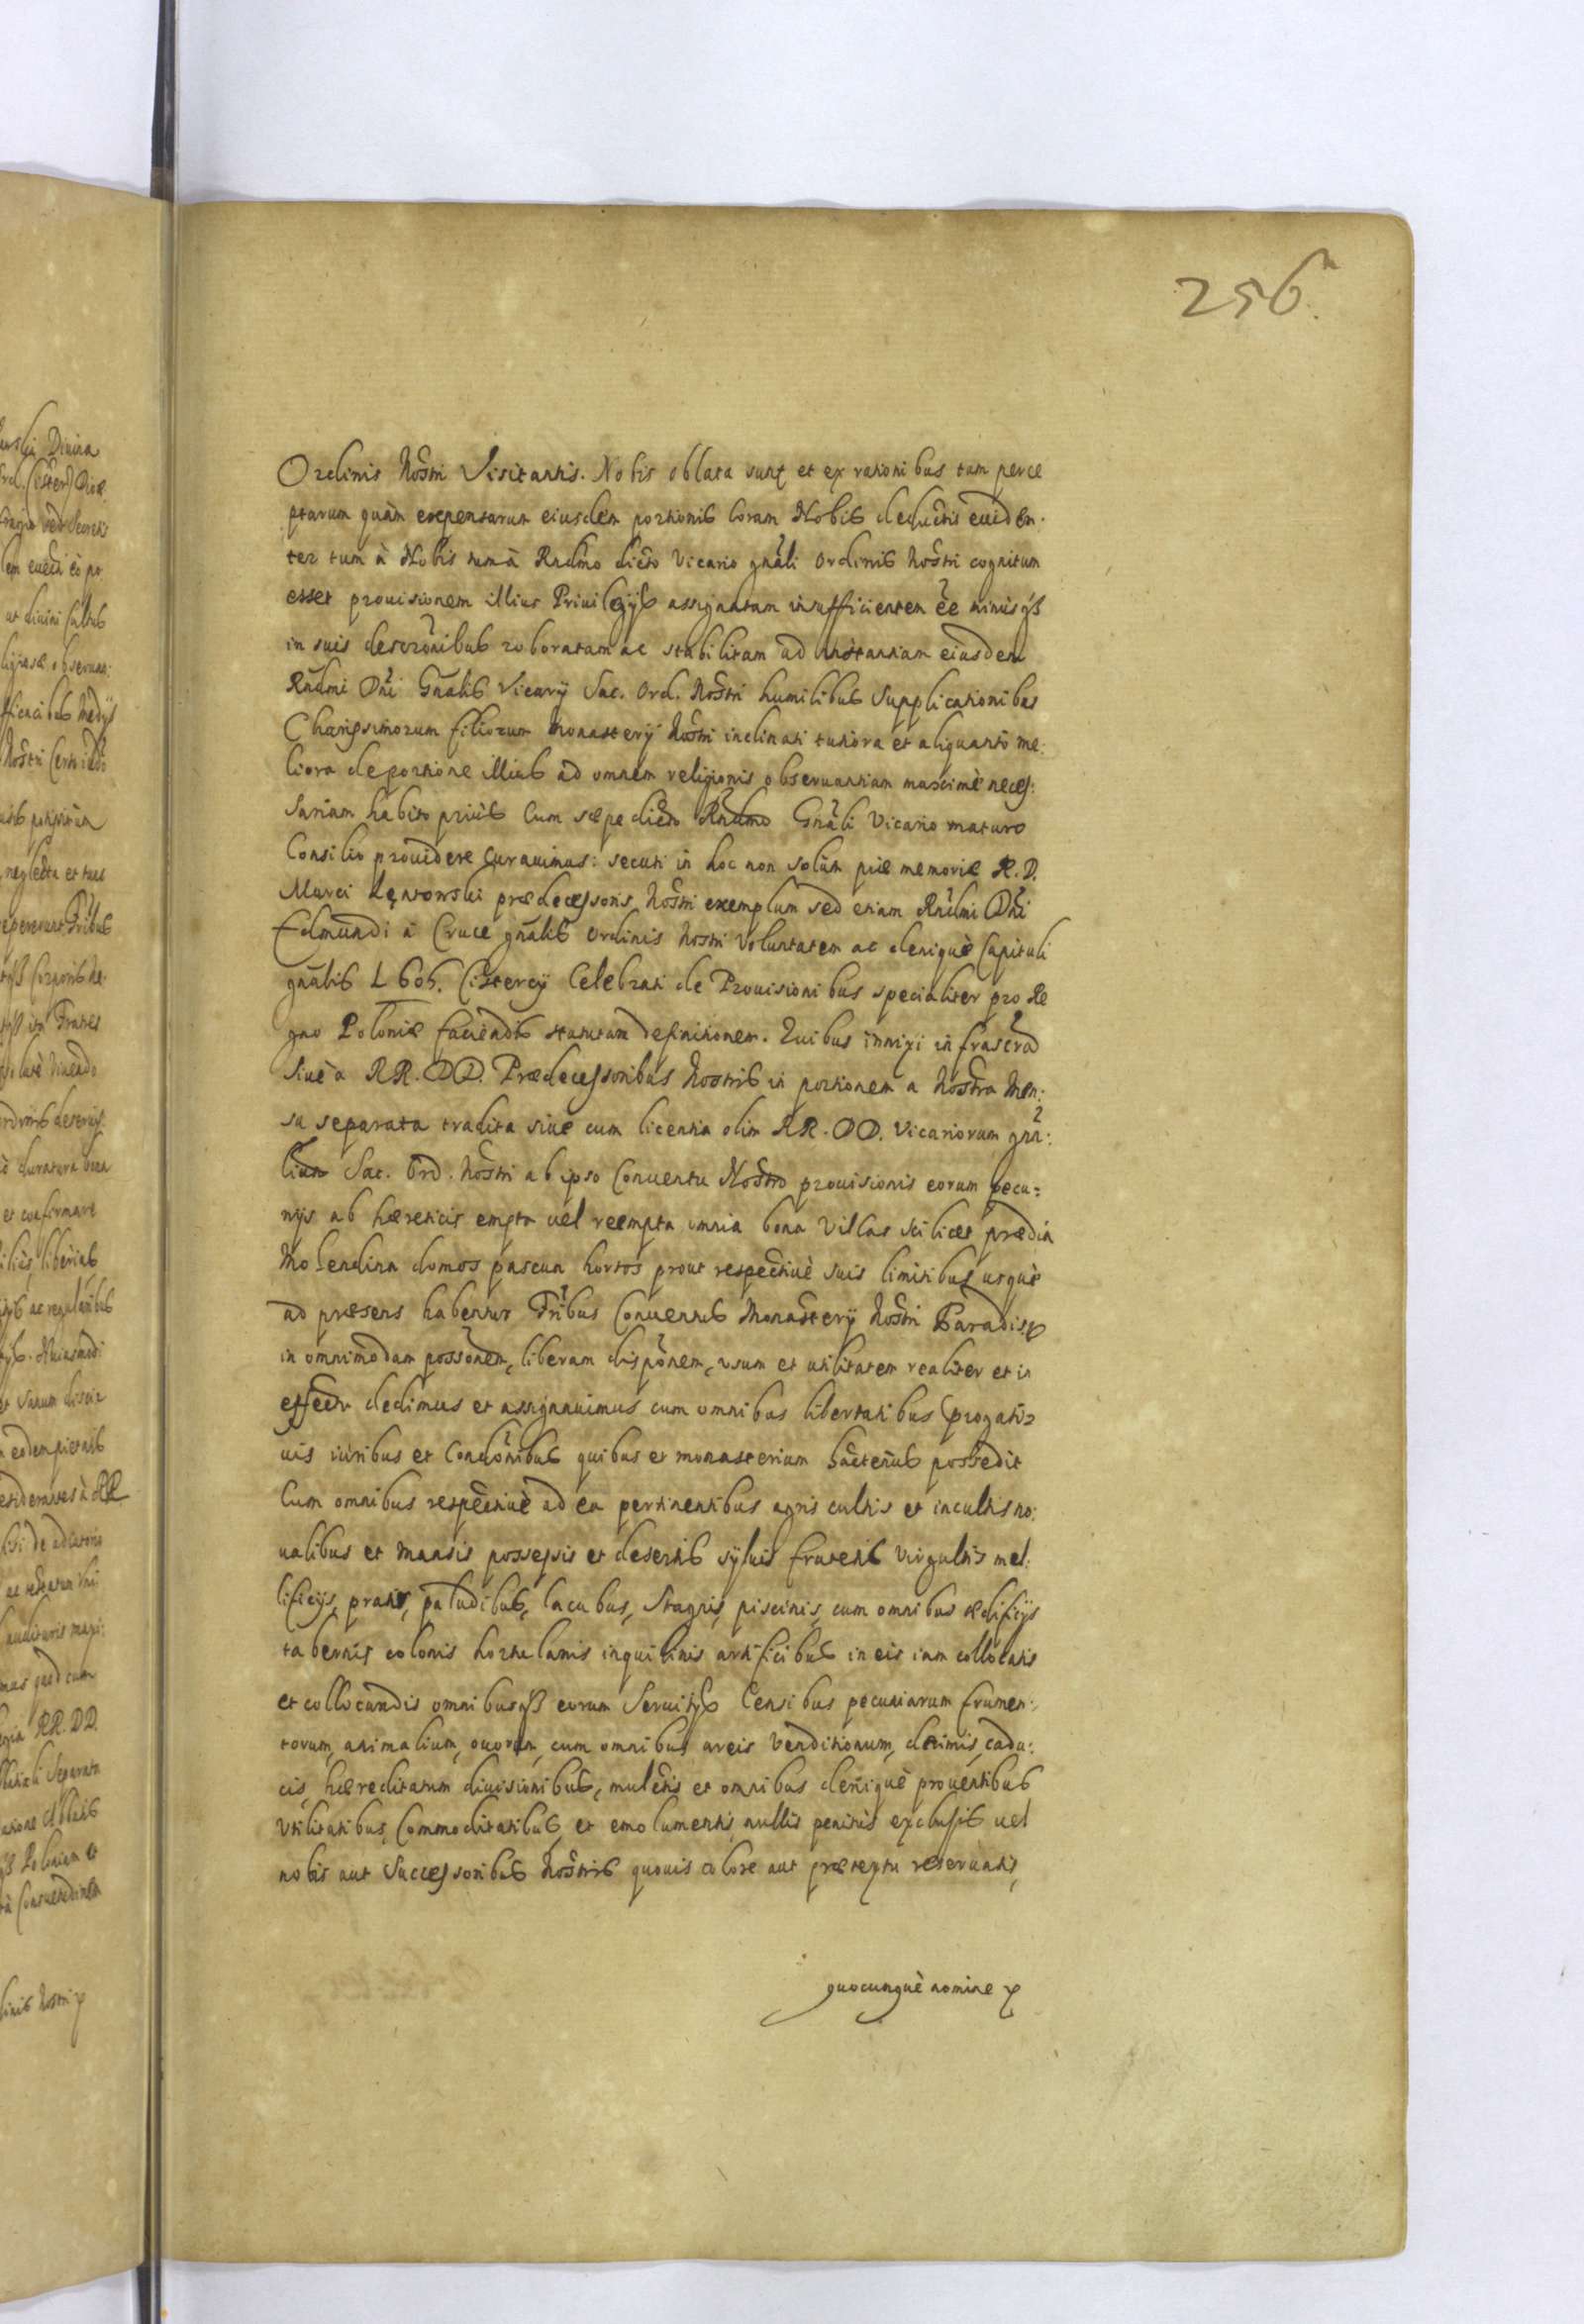 256.
Ordinis Nostri Visitantis. Nobis oblata sunt et ex rationibus tam perce
ptarum quàm expensarum eiusdem portionis Coram Nobis deductis euiden-
ter tum à Nobis tum à Rndmo dicto Vicario gnāli Ordinis Nostri cognitum
esset prouisionem illius Priuilegijs assignatam insufficientem ēē minusq3
in suis descrōnibus roboratam ac stabilitam ad instantiam eiusdem
Rndmi Dni Gnālis Vicarij Sac. Ord. Nostri humilibus Supplicationibus
Charissimorum filiorum Monasterij Nostri inclinati tutiora et aliquantò me:
liora de portione illius ad omnem religionis obseruantiam maximè neces:
sariam habito priùs Cum sæpe dicto Rndmo Gnāli Vicario maturo
Consilio prouidere Curauimus: secuti in hoc non solùm piæ memoriæ R. D.
Marci Łętowski prædecessoris Nostri exemplum sed etiam Rndmi Dni
Edmundi à Cruce gnālis Ordinis Nostri Voluntatem ac deniquè Capituli
gnālis 1605. Cistercij Celebrati de Prouisionibus specialiter pro Re
gno Poloniæ faciendis statutam definitionem. Quibus innixi infrascrā
siuè a RR. DD. Prædecessoribus Nostris in portionem a Nostra Men:
sa separata tradita siuè cum licentia olim RR. DD. Vicariorum gnā:
lium Sac. Ord. Nostri ab ipso Conuentu Nostro prouisionis eorum pecu=
nijs ab hæreticis empta uel reempta omnia bona Villas scilicet prædia
Molendina domos pascua hortos prout respectiuè suis limitibus usquè
ad præsens habentur Fribus Conuentus Monasterij Nostri Paradisij
in omnimodam possōnem, liberam dispōnem, usum et utilitatem realiter et in
effectu dedimus et assignauimus cum omnibus libertatibus progati=
uis iuribus et Condōnibus quibus et monasterium hactenus possedit
Cum omnibus respectiuè ad ea pertinentibus agris cultis et incultis no:
ualibus et Mansis possessis et desertis syluis frutetis Virgultis mel:
lificijs, pratis, paludibus, lacubus, Stagnis, piscinis, cum omnibus ædificijs
tabernis colonis hortulanis inquilinis artificibus in eis iam collocatis
et collocandis omnibusq3 eorum Seruitijs Censibus pecuniarum frumen:
torum, animalium, ouorum, cum omnibus areis Venditionum, decimis, cadu:
cis, hæreditatum diuisionibus, mulctis et omnibus deniquè prouentibus
Vtilitatibus, Commoditatibus, et emolumentis, nullis penitùs exclusis uel
nobis aut Successoribus Nostris quouis colore aut prætextu reseruatis,
quocunquè nomine